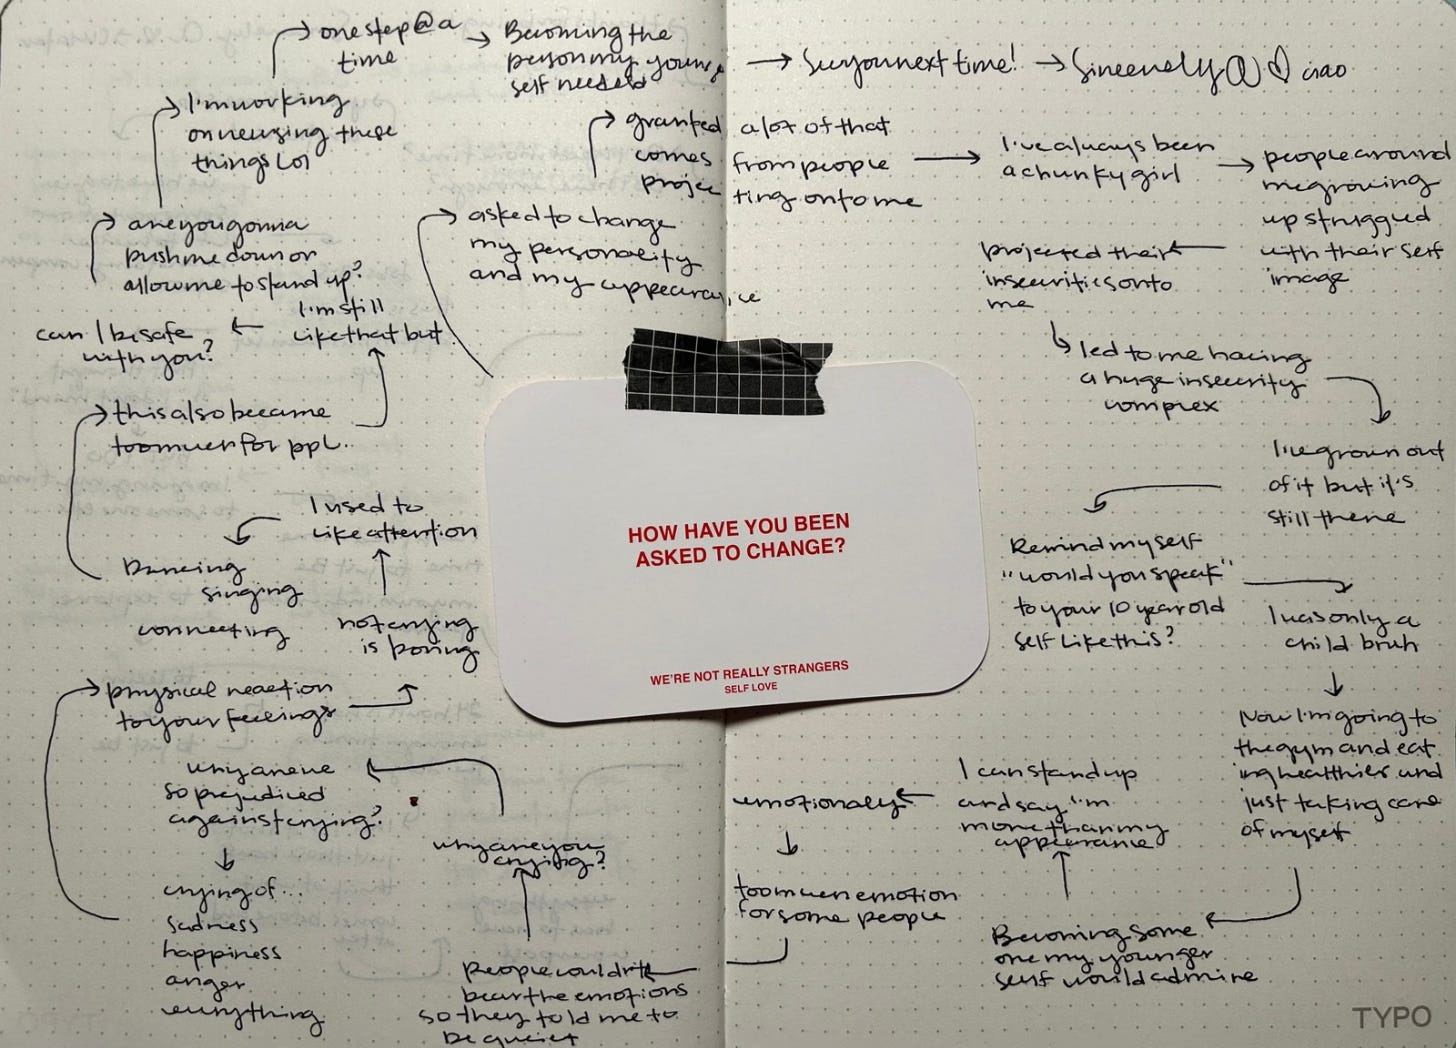 HOW HAVE YOU BEEN
ASKED TO CHANGE?
WE'RE NOT REALLY STRANGERS
SELF LOVE
asked to change
my personality
and my appearance
granted a lot of that
comes from people
projecting onto me
I've always been
a chunky girl
people around
me growing
up struggled
with their self
image
projected their
insecurities onto
me
led to me having
a huge insecurity
complex
I've grown out
of it but it's
still there
Remind myself
"would you speak"
to your 10 year old
self like this?
I was only a
child bruh
Now I'm going to
the gym and eat
ing healthier and
just taking care
of myself
Becoming some
one my younger
self would admire
I can stand up
and say I'm
more than my
appearance
emotionally
too much emotion
for some people
People couldn't
bear the emotions
so they told me to
be quiet
why are you
crying?
why are we
so prejudiced
against crying?
crying of...
sadness
happiness
anger
everything
physical reaction
to your feelings
not crying
is boring
I used to
like attention
Dancing
singing
connecting
this also became
too much for ppl.
I'm still
like that but
can I be safe
with you?
are you gonna
push me down or
allow me to stand up?
I'm working
on reusing these
things lol
one step @ a
time
Becoming the
person my younger
self needed
See you next time!
Sincerely ciao
TYPO